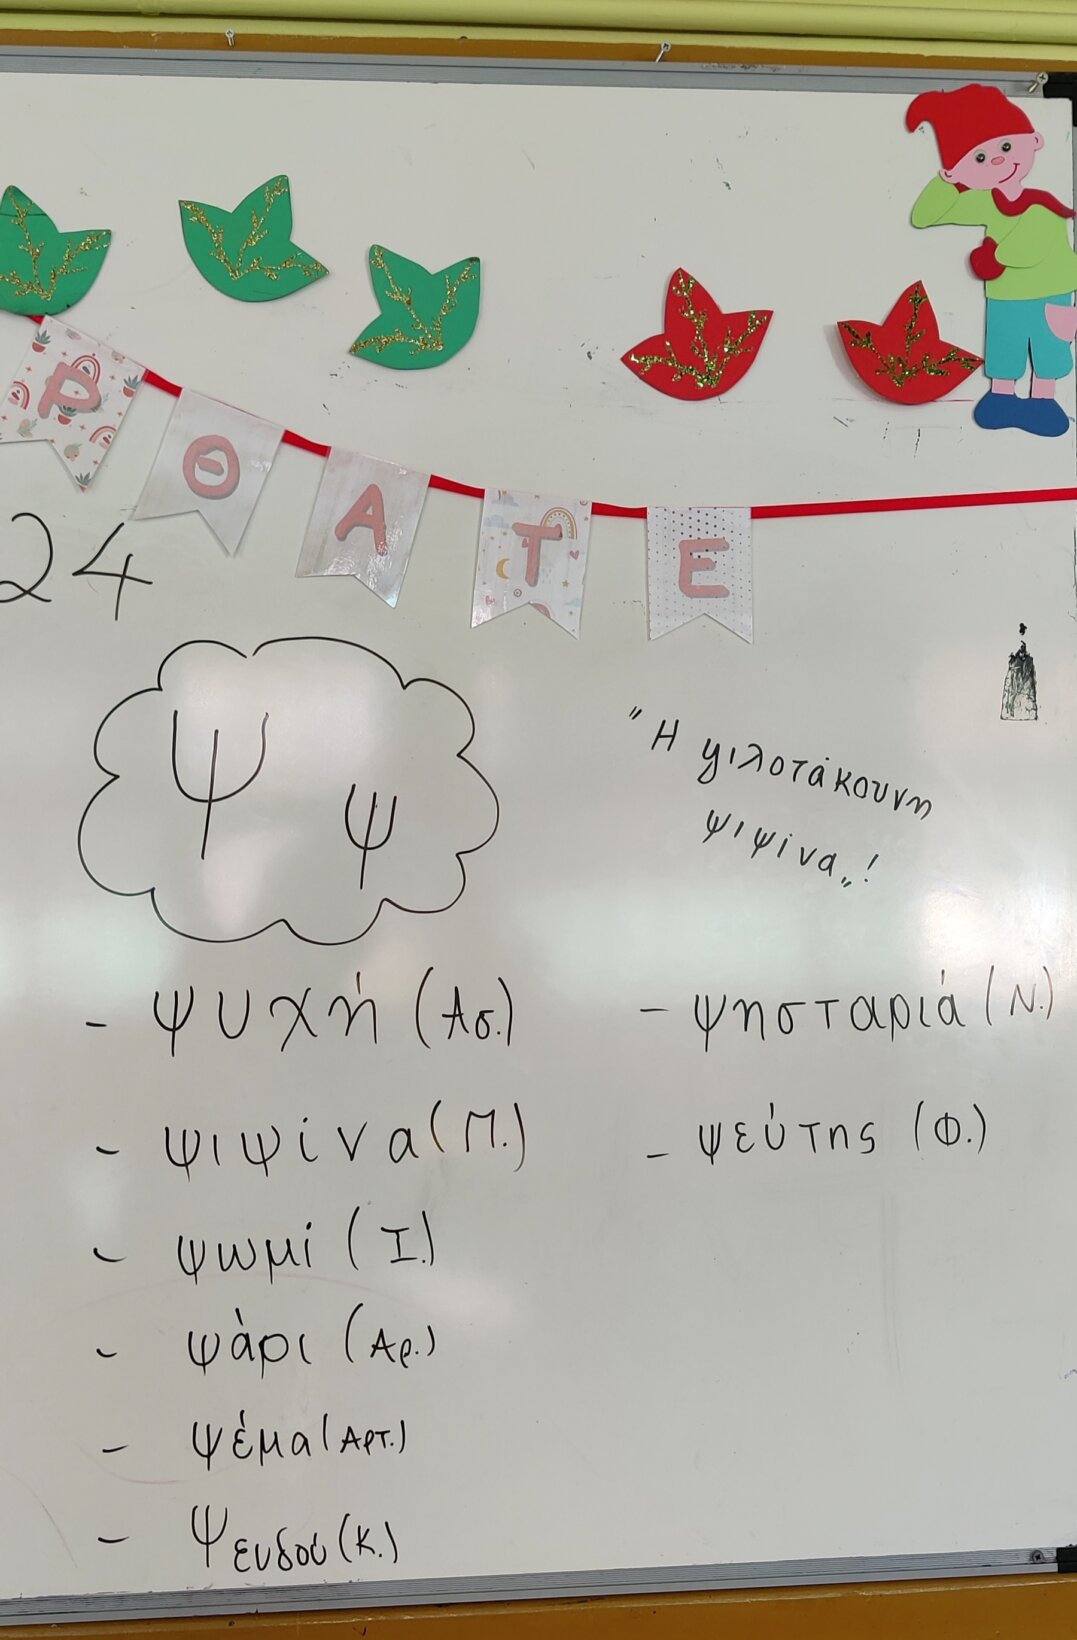 ΡΘΑΤΕ
24
Ψ ψ
"Η ψιλοτάκουνη
ψιψίνα„!
- ψυχή (Ασ.)
- ψιψίνα (Π.)
- ψωμί (Ι.)
- ψάρι (Αρ.)
- ψέμα (Αρτ.)
- Ψευδού (Κ.)
- ψησταριά (Ν.)
- ψεύτης (Φ.)